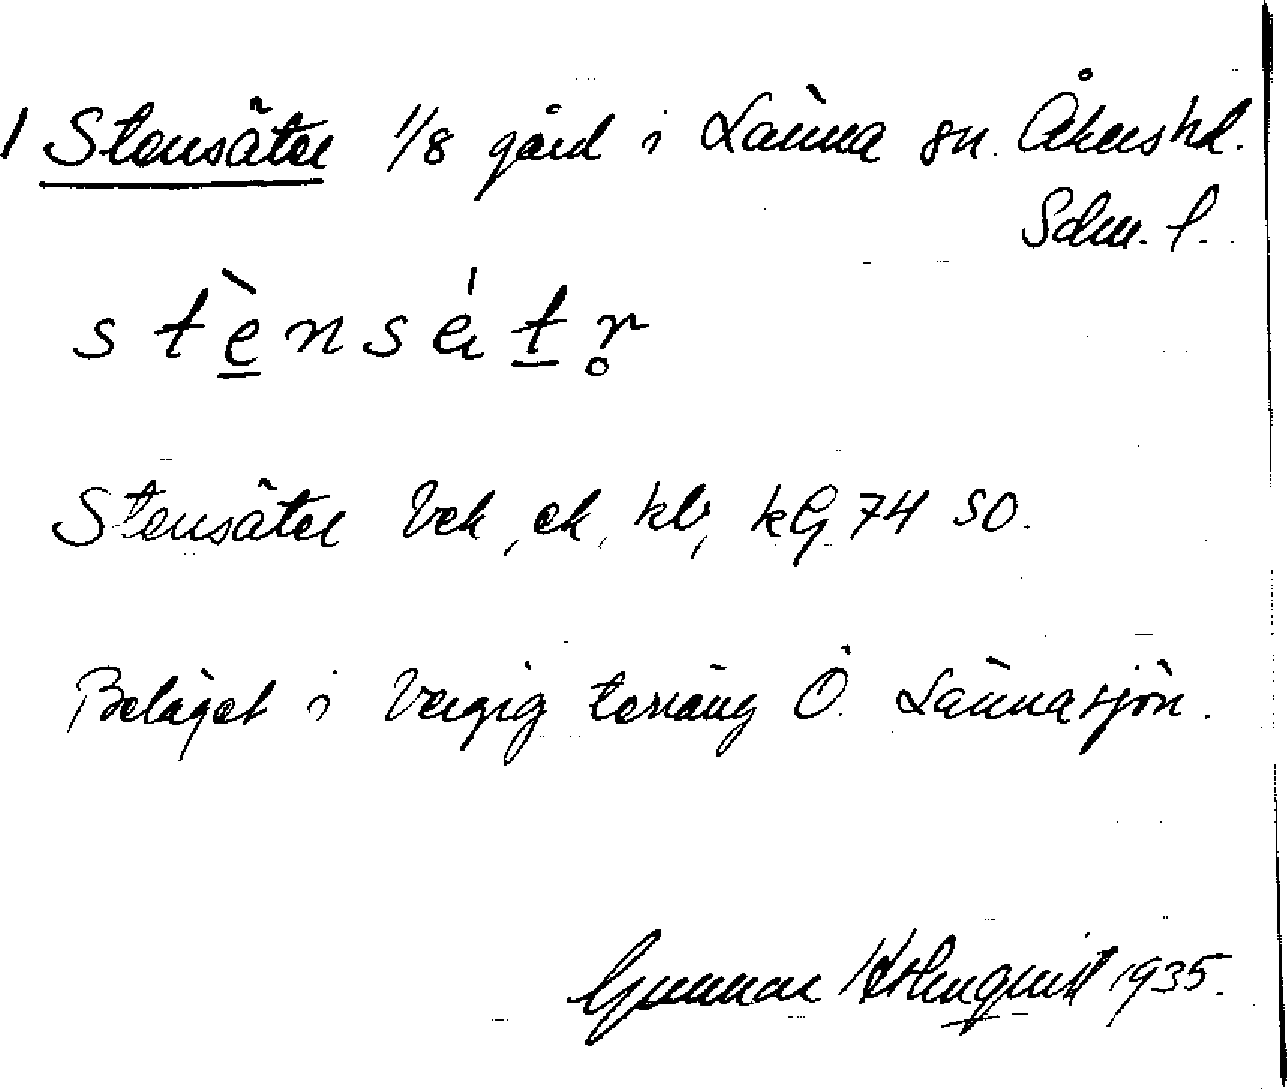 1 Stensäter 1/8 gård i Länna sn. Åkers hd.
Sdm. l.
stè̱nsétṟ̊
Stensäter Vck, ek, kb, kG 74 SO.
Beläget i bergig terräng Ö. Lännasjön.
Gunnar Holmquist 1935.